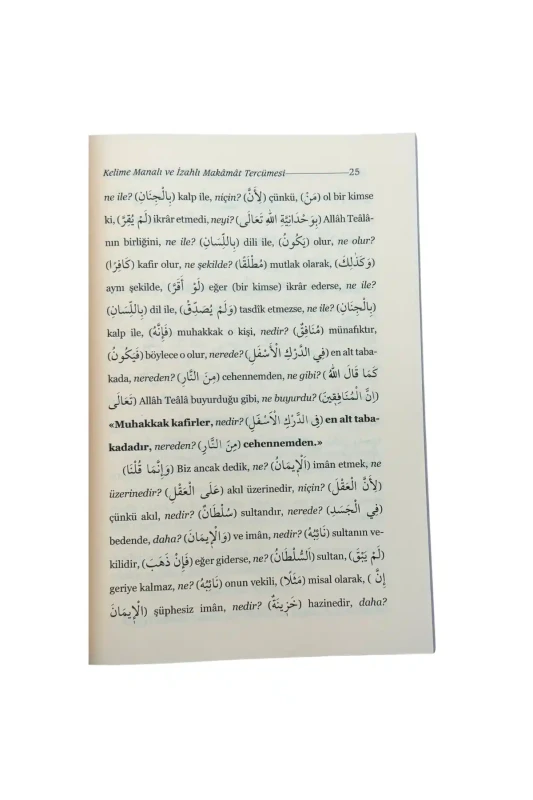 Kelime Manalı ve İzahlı Makâmât Tercümesi 25
ne ile? (بِالْجِنَانِ) kalp ile, niçin? (لِأَنَّ) çünkü, (مَنْ) ol bir kimse
ki, (لَمْ يُقِرَّ) ikrâr etmedi, neyi? (بِوَحْدَانِيَّةِ اللّٰهِ تَعَالَى) Allâh Teâlâ-
nın birliğini, ne ile? (بِاللِّسَانِ) dili ile, (يَكُونُ) olur, ne olur?
(كَافِرًا) kafir olur, ne şekilde? (مُطْلَقًا) mutlak olarak, (وَكَذٰلِكَ)
aynı şekilde, (لَوْ أَقَرَّ) eğer (bir kimse) ikrâr ederse, ne ile?
(بِاللِّسَانِ) dil ile, (وَلَمْ يُصَدِّقْ) tasdîk etmezse, ne ile? (بِالْجِنَانِ)
kalp ile, (فَإِنَّهُ) muhakkak o kişi, nedir? (مُنَافِقٌ) münafıktır,
(فَيَكُونُ) böylece o olur, nerede? (فِي الدَّرْكِ الْأَسْفَلِ) en alt taba-
kada, nereden? (مِنَ النَّارِ) cehennemden, ne gibi? (كَمَا قَالَ اللّٰهُ
تَعَالَى) Allâh Teâlâ buyurduğu gibi, ne buyurdu? (إِنَّ الْمُنَافِقِينَ)
«Muhakkak kafirler, nedir? (فِي الدَّرْكِ الْاَسْفَلِ) en alt taba-
kadadır, nereden? (مِنَ النَّارِ) cehennemden.»
(وَإِنَّمَا قُلْنَا) Biz ancak dedik, ne? (اَلْإِيمَانُ) imân etmek, ne
üzerinedir? (عَلَى الْعَقْلِ) akıl üzerinedir, niçin? (لِأَنَّ الْعَقْلَ)
çünkü akıl, nedir? (سُلْطَانٌ) sultandır, nerede? (فِي الْجَسَدِ)
bedende, daha? (وَالْإِيمَانُ) ve imân, nedir? (نَائِبُهُ) sultanın ve-
kilidir, (فَإِنْ ذَهَبَ) eğer giderse, ne? (اَلسُّلْطَانُ) sultan, (لَمْ يَبْقَ)
geriye kalmaz, ne? (نَائِبُهُ) onun vekili, (مَثَلًا) misal olarak, (إِنَّ
الْإِيمَانَ) şüphesiz imân, nedir? (خَزِينَةٌ) hazinedir, daha?